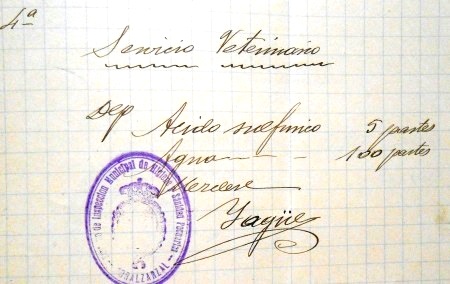 4ª
Servicio Veterinario
Dep Acido sulfurico 5 partes
Agua 100 partes
Mezclese
Yagüe
Inspección Municipal de